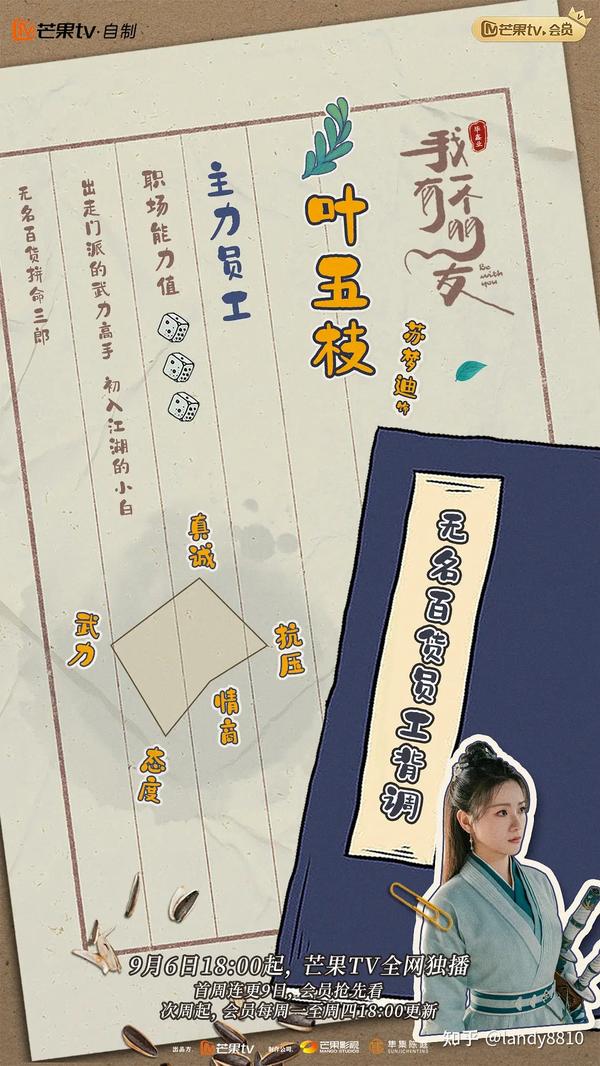 芒果tv·自制
芒果tv会员
毕鑫业
我有一个朋友
Be with you
叶五枝
苏梦迪 饰
主力员工
职场能力值
出走门派的武力高手 初入江湖的小白
无名百货拼命三郎
真诚
武力
抗压
情商
态度
无名百货员工背调
9月6日18:00起，芒果TV全网独播
首周连更9日，会员抢先看
次周起，会员每周一至周四18:00更新
出品方 芒果tv 制作公司 芒果影视 MANGO STUDIOS SUNJICHENTING
知乎 @landy8810